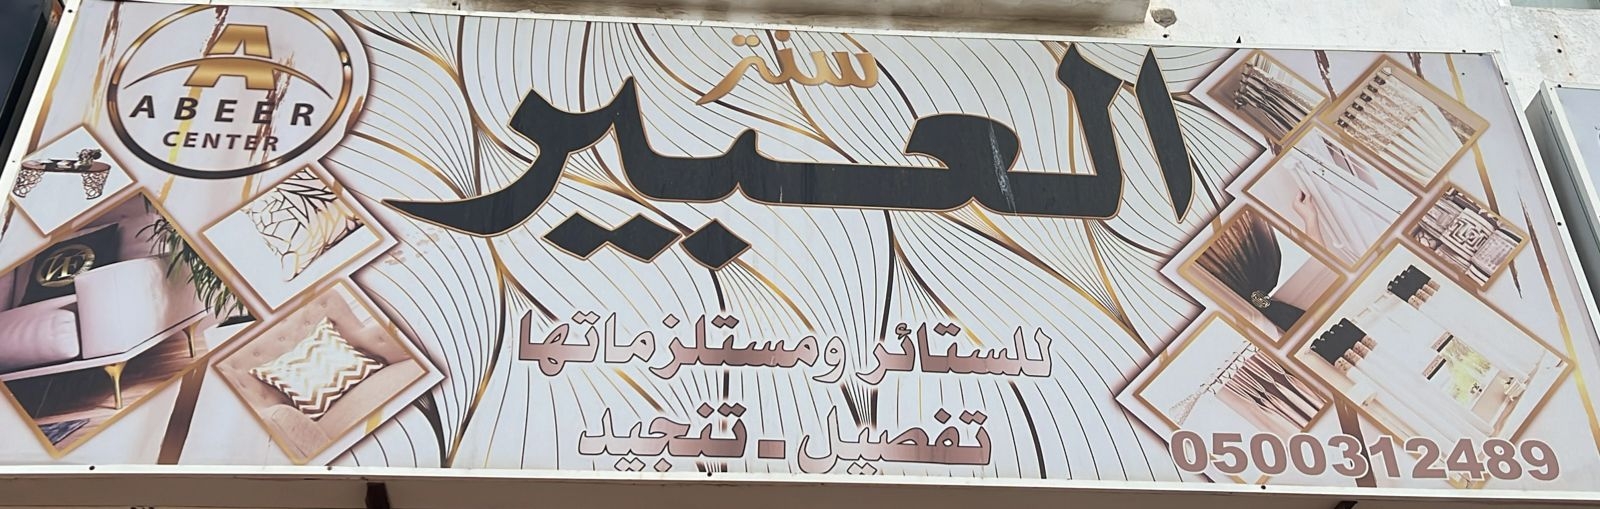 ABEER
CENTER
سنتر
العبير
للستائر ومستلزماتها
تفصيل - تنجيد
0500312489